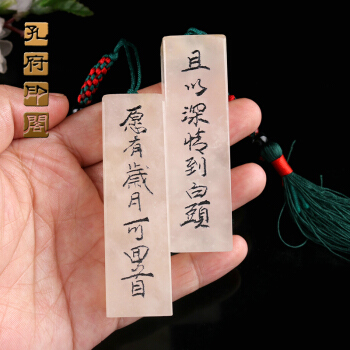 孔府印阁
愿有歲月可回首
且以深情到白頭